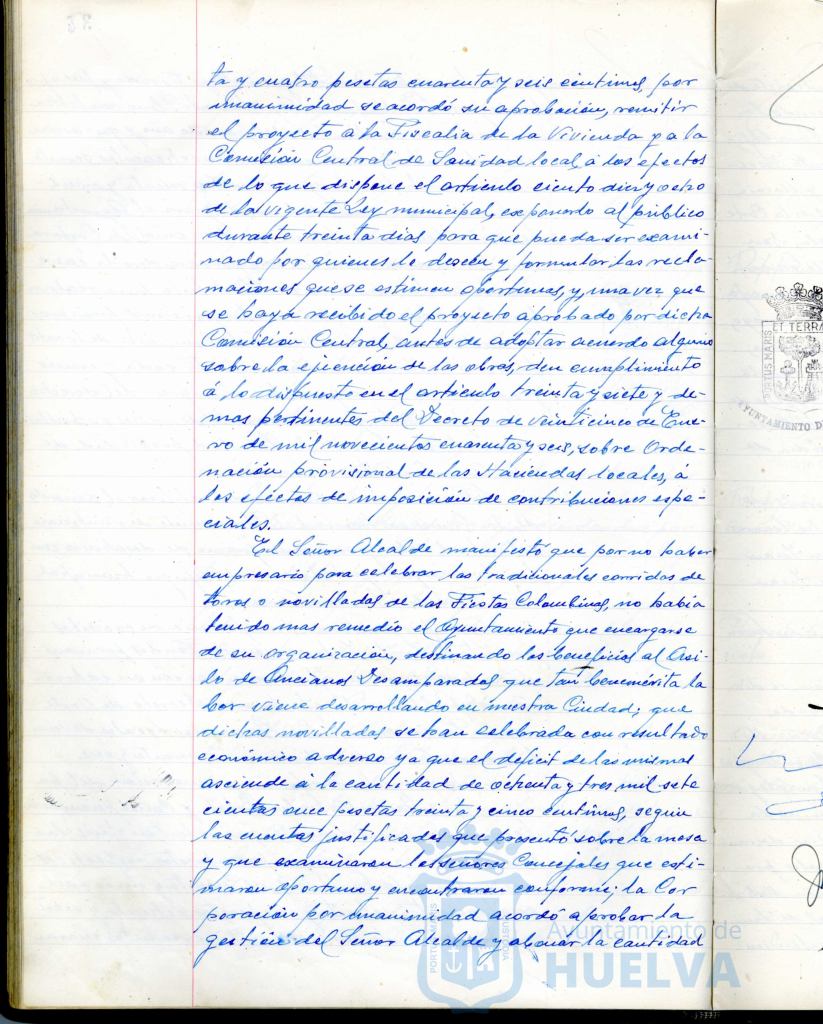 ta y cuatro pesetas cuarenta y seis centimos, por
unanimidad se acordó su aprobación, remitir
el proyecto á la Fiscalia de la Vivienda y a la
Comisión Central de Sanidad local, á los efectos
de lo que dispone el articulo ciento diez y ocho
de la vigente Ley municipal, exponerlo al público
durante treinta dias para que pueda ser exami-
nado por quienes lo deseen y formular las recla-
maciones que se estimen oportunas, y, una vez que
se haya recibido el proyecto aprobado por dicha
Comisión Central, antes de adoptar acuerdo alguno
sobre la ejecución de las obras, den cumplimiento
á lo dispuesto en el articulo treinta y siete y de-
mas pertinentes del Decreto de veinticinco de Ene-
ro de mil novecientos cuarenta y seis, sobre Orde-
nación provisional de las Haciendas locales, á
los efectos de imposición de contribuciones espe-
ciales.
El Señor Alcalde manifestó que por no haber
empresario para celebrar las tradicionales corridas de
toros o novilladas de las Fiestas Colombinas, no habia
tenido mas remedio el Ayuntamiento que encargarse
de su organización, destinando los beneficios al Asi-
lo de Ancianos Desamparados que tan benemérita la
bor viene desarrollando en nuestra Ciudad; que
dichas novilladas se han celebrado con resultado
económico adverso ya que el deficit de las mismas
asciende á la cantidad de ochenta y tres mil sete
cientas once pesetas treinta y cinco centimos, segun
las cuentas justificadas que presentó sobre la mesa
y que examinaron los señores Concejales que esti-
maron oportuno y encontraron conforme; la Cor
poración por unanimidad acordó aprobar la
gestión del Señor Alcalde y abonar la cantidad
PORTUS MARIS ET TERRA
AYUNTAMIENTO D
Ayuntamiento de
HUELVA